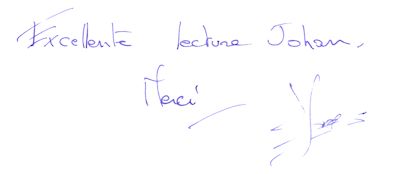 Excellente lecture Johan.
Merci